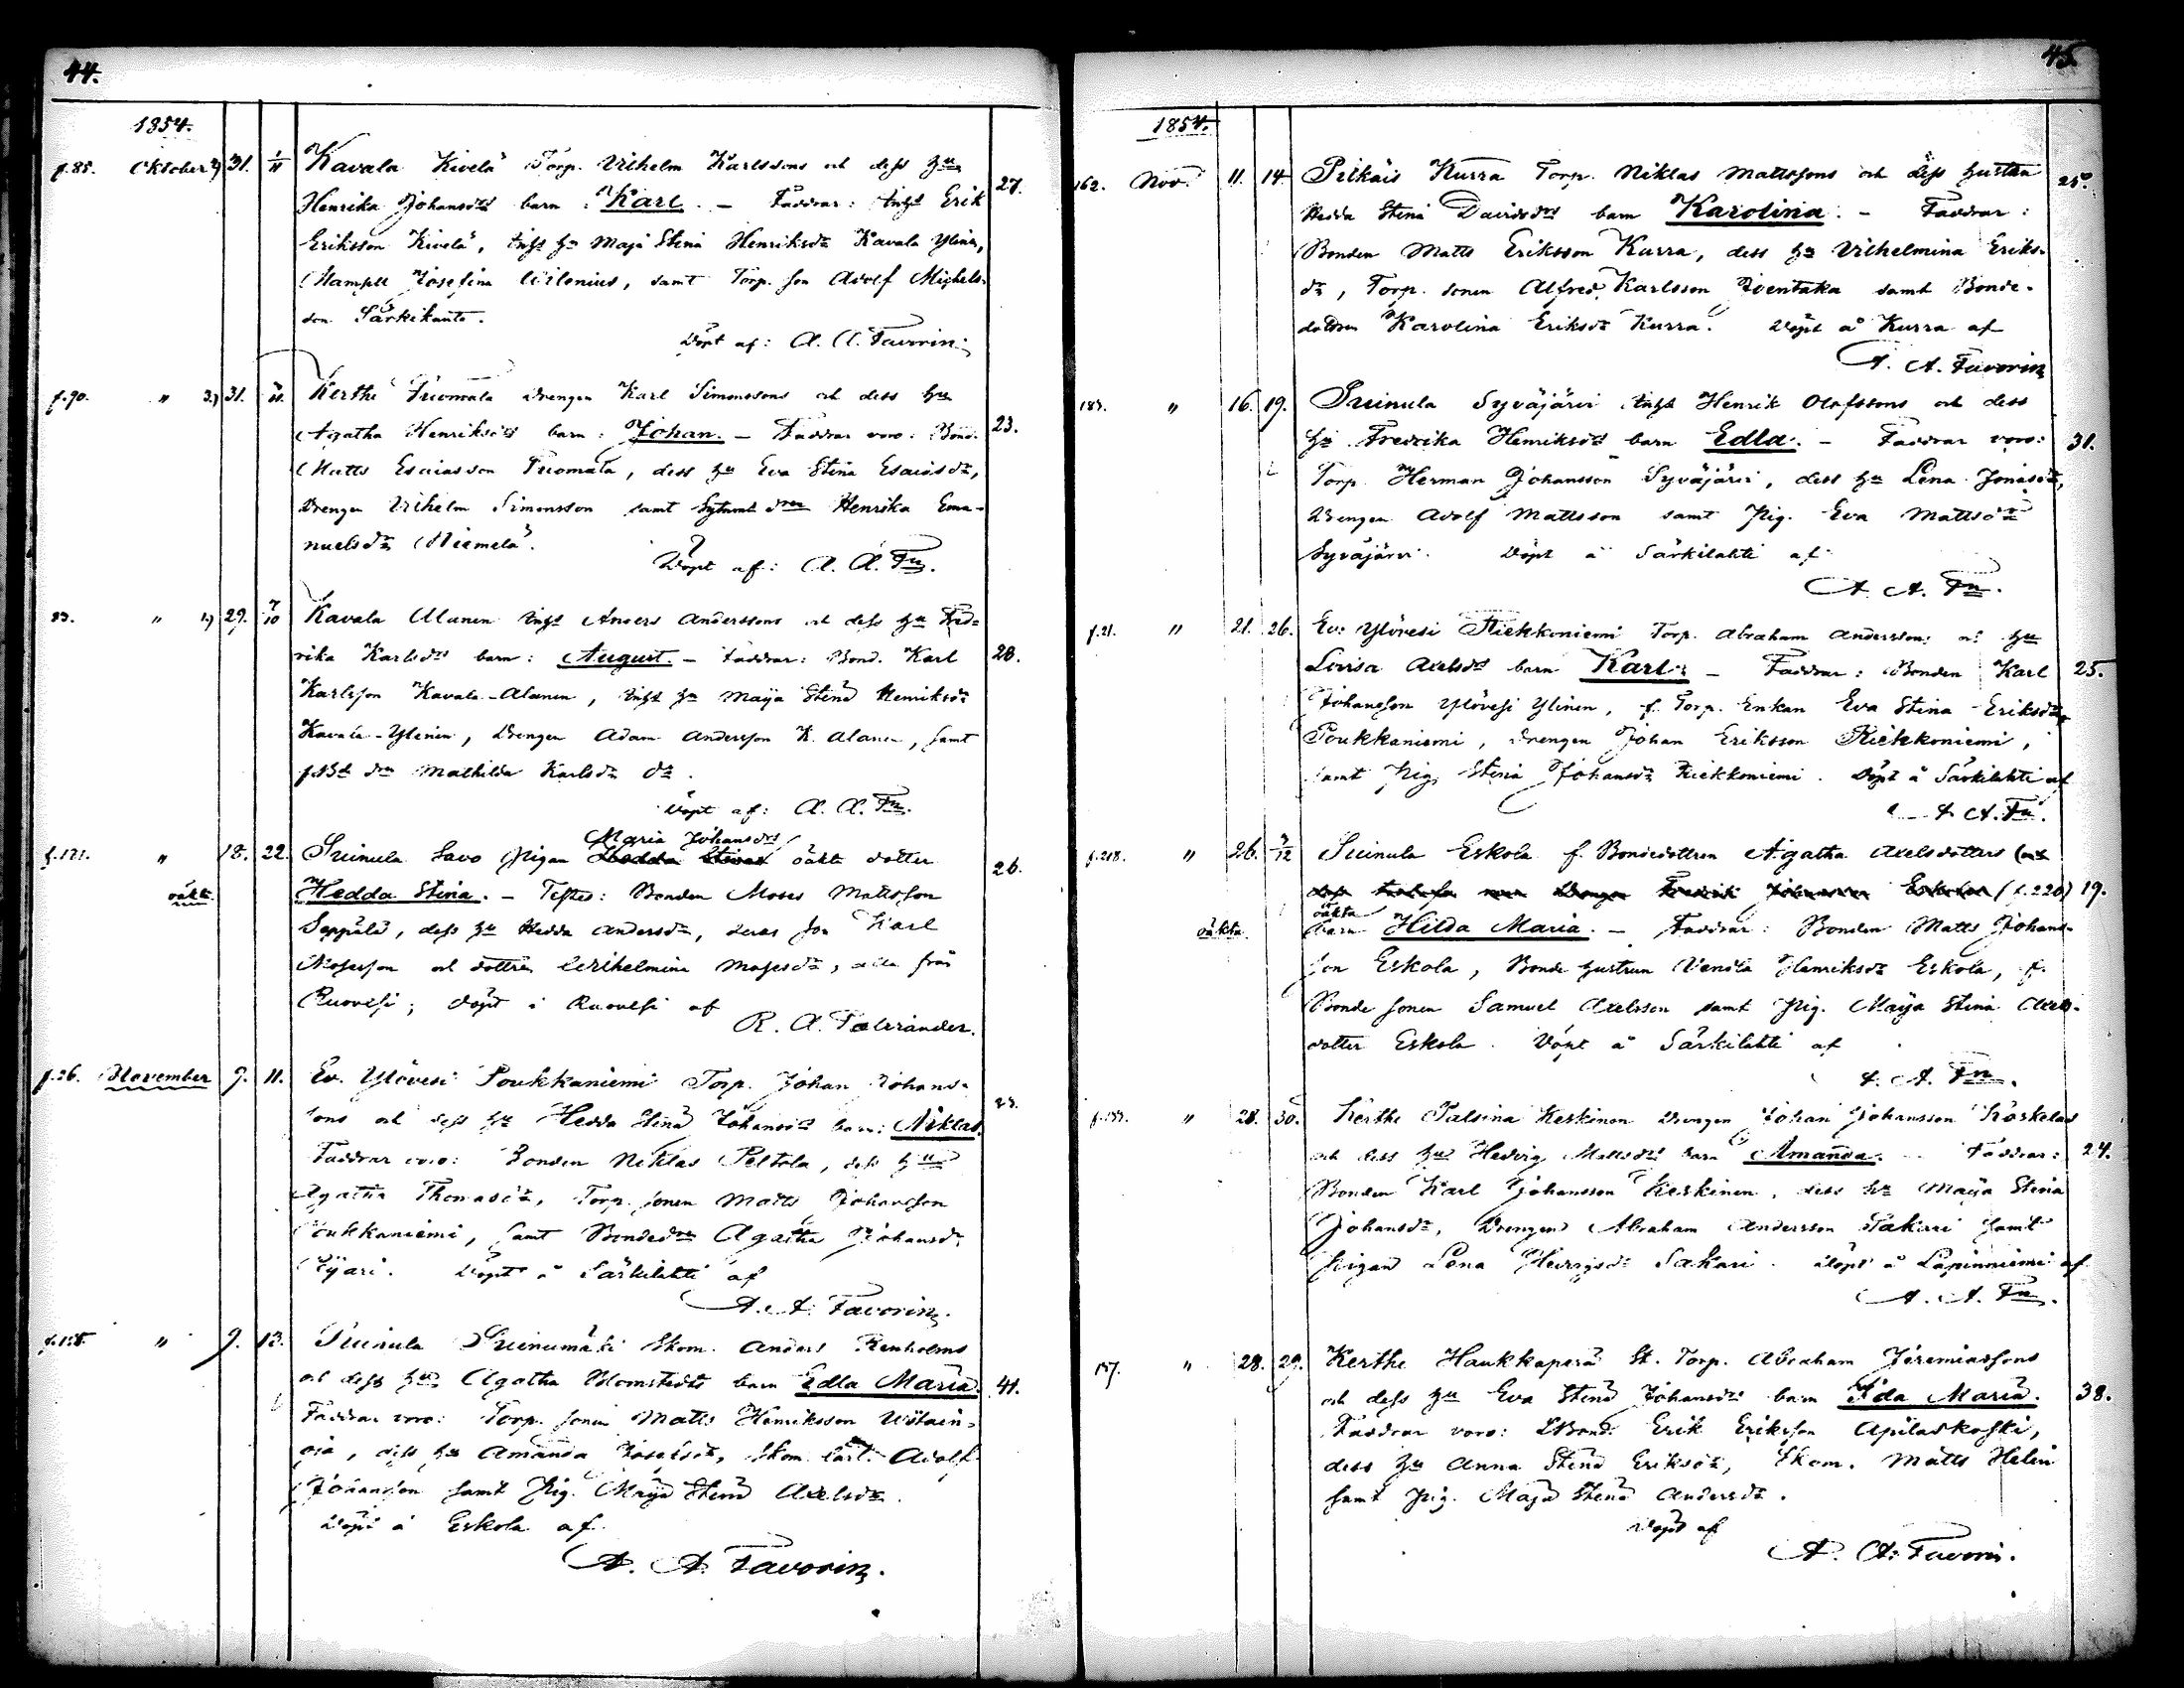 44.
1854.
f.85. Oktober 3) 31. 1/11 Kavala Kivelä Torp. Vilhelm Karlssons och dess Hu 27.
Henrika Johansdrs barn: Karl. – Faddrar: Inhs Erik
Eriksson Kivelä, Inhs Hu Maja Stina Henriksdr Kavala Ylinen,
Mamsell Josefina samt Torp. son Adolf Michels-
son Särkikanto.
Döpt af: A. A. Favorin.
f.90. " 2) 31. Kerthe Tuomala Drengen Karl Simonssons och dess Hu
Agatha Henriksdrs barn: Johan. – Faddrar voro: Bond. 23.
Matts Esaiasson Tuomala, dess Hu Eva Stina Esaiasdr,
Drengen Vilhelm Simonsson samt Henrika Ema-
nuelsdr Niemelä.
Döpt af: A. A. Fn.
83. " 1) 29. Kavala Alanen Inhs Anders Anderssons och dess Hu Fred-
rika Karlsdrs barn: August. – Faddrar: Bond. Karl 28.
Karlsson Kavala-Alanen, Inhs Hu Maija Stina Henriksdr
Kavala-Ylinen, Drengen Adam Andersson K. Alanen, samt
Mathilda Karlsdr
Döpt af: A. A. Fn.
Maria Johansdrs
f.171. " 18. 22. Suinula Savo Pigan Hedda Stinas oäkta dotter 26.
oäkta. Hedda Stina. – Testes: Bonden Moses Mattsson
Seppälä, dess Hu Hedda Andersdr, deras son Karl
Mosesson och dottren Wilhelmina Mosesdr, alla från
Ruovesi; döpt i Ruovesi af
R. A.
f.26. November 9. 11. Ev. Ylövesi Poukkaniemi Torp. Johan Johans-
sons och dess Hu Hedda Stina Johansdrs barn: Niklas. 23.
Faddrar voro: Bonden Niklas Peltola, dess Hu
Agatha Thomasdr, Torp. sonen Matts Johansson
Poukkaniemi, samt Bondedrn Agatha Johansdr
Pijari. Döpt å Särkilahti af
A. A. Favorin.
" 9. 13. Suinula Suinumäki Skom. Anders Renholms
och dess Hu Agatha Blomstedts barn Edla Maria. 41.
Faddrar voro: Torp. sonen Matts Henriksson
oja, dess Hu Amanda Josefsdr, Skom. lärl. Adolf
Johansson samt Pig. Maija Stina Axelsdr.
Döpt å Eskola af
A. A. Favorin.
45.
1854.
162. Nov. 11. 14. Pitkäis Kurra Torp. Niklas Mattssons och dess hustru
Hedda Stina Davidsdrs barn Karolina. – Faddrar:
Bonden Matts Eriksson Kurra, dess Hu Vilhelmina Eriks-
dr, Torp. sonen Alfred Karlsson samt Bonde-
dottren Karolina Eriksdr Kurra. Döpt å Kurra af
A. A. Favorin
183. " 16. 19. Suinula Syväjärvi Inhs Henrik Olofssons och dess
Hu Fredrika Henriksdrs barn Edla. – Faddrar voro: 31.
Torp. Herman Johansson Syväjärvi, dess Hu Lena Jonasdr,
Drengen Adolf Mattsson samt Pig. Eva Mattsdr
Syväjärvi. Döpt å Särkilahti af
A. A. Fn.
f.21. " 21. 26. Ev: Ylövesi Riekkoniemi Torp. Abraham Anderssons o. Hu
Lovisa Axelsdrs barn Karl: – Faddrar: Bonden Karl 25.
Johansson Ylövesi Ylinen, f. Torp. Enkan Eva Stina Eriksdr
Poukkaniemi, Drengen Johan Eriksson Riekkoniemi,
samt Pig. Stina Johansdr Riekkoniemi. Döpt å Särkilahti af
A. A. Fn.
f.218. " 26. 3/12 Suinula Eskola f. Bondedottren Agatha Axelsdotters (och
Drengen Fredrik Johansson Eskolas (f.220) 19.
oäkta
oäkta. barn Hilda Maria. – Faddrar: Bonden Matts Johans-
son Eskola, Bonde hustrun Vendla Henriksdr Eskola, f.
Bonde sonen Samuel Axelsson samt Pig. Maija Stina Axels-
dotter Eskola. Döpt å Särkilahti af
A. A. Fn.
" 28. 30. Kerthe Palsina Keskinen Drengen Johan Johansson Koskelas
och dess Hu Hedvig Mattsdrs barn Amanda. Faddrar: 24.
Bonden Karl Johansson Keskinen, dess Hu Maija Stina
Johansdr, Drengen Abraham Andersson Sakari samt
Pigan Lena Sakari. Döpt å Lapinniemi af
A. A. Fn.
" 28. 29. Kerthe Haukkaperä St. Torp. Abraham Jeremiassons
och dess Hu Eva Stina Johansdrs barn Ida Maria. 38.
Faddrar voro: Bond: Erik Eriksson Apilaskoski,
dess Hu Anna Stina Eriksdr, Skom. Matts Helin
samt Pig. Maja Stina Andersdr.
Döpt af
A. A. Favorin.